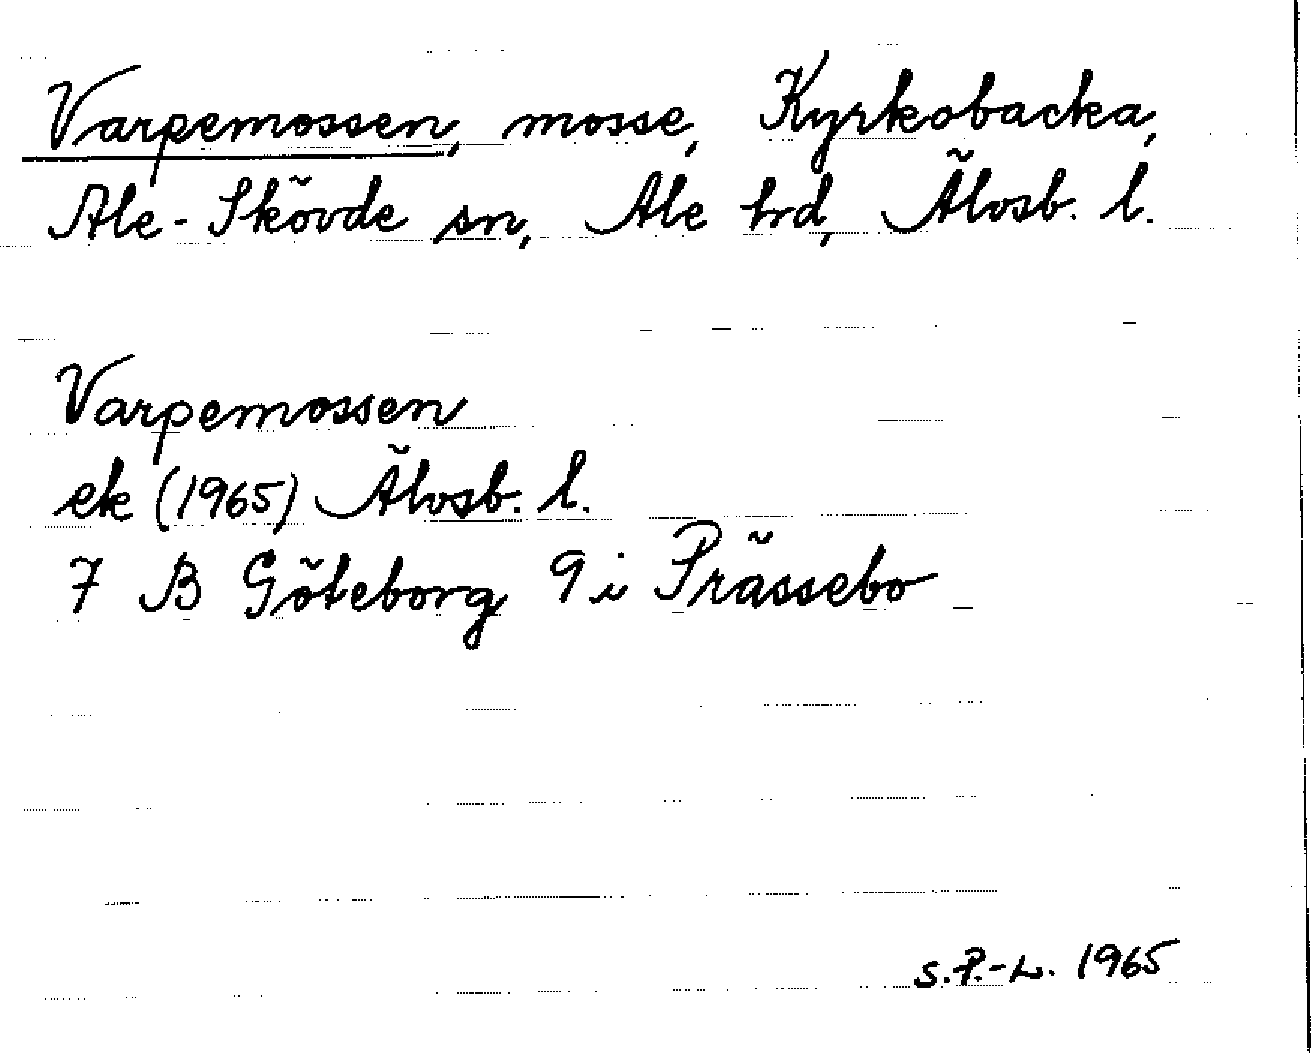 Varpemossen, mosse, Kyrkobacka,
Ale-Skövde sn, Ale hrd, Älvsb. l.
Varpemossen
ek (1965) Älvsb. l.
7 B Göteborg 9 i Prässebo
S.P.-L. 1965